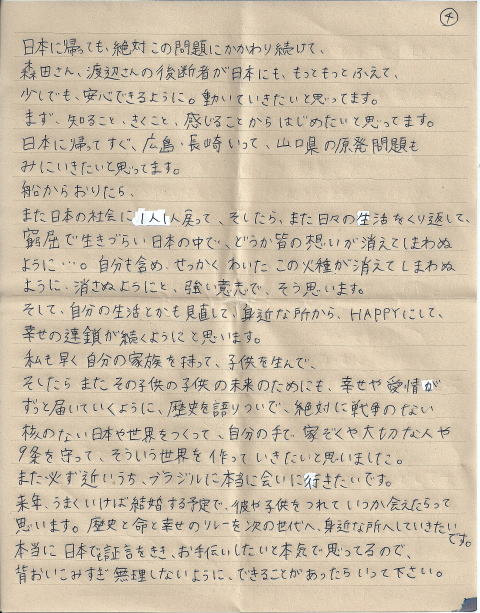 4
日本に帰っても、絶対この問題にかかわり続けて、
森田さん、渡辺さんの後断者が日本にも、もっともっとふえて、
少しでも、安心できるように。動いていきたいと思ってます。
まず、知ること、きくこと、感じることからはじめたいと思ってます。
日本に帰ってすぐ、広島・長崎いって、山口県の原発問題も
みにいきたいと思ってます。
船からおりたら、
また日本の社会に1人1人戻って、そしたら、また日々の生活をくり返して、
窮屈で生きづらい日本の中で、どうか皆の想いが消えてしまわぬ
ように…。自分も含め、せっかくわいたこの火種が消えてしまわぬ
ように、消さぬようにと、強い意志で、そう思います。
そして、自分の生活とかも見直して、身近な所から、HAPPYにして、
幸せの連鎖が続くようにと思います。
私も早く自分の家族を持って、子供を生んで、
そしたらまたその子供の子供の未来のためにも、幸せや愛情が
ずっと届いていくように、歴史を語りついで、絶対に戦争のない
核のない日本や世界をつくって、自分の手で家ぞくや大切な人や
9条を守って、そういう世界を作っていきたいと思いました。
また必ず近いうち、ブラジルに本当に会いに行きたいです。
来年、うまくいけば結婚する予定で、彼や子供をつれていつか会えたらって
思います。歴史と命と幸せのリレーを次の世代へ、身近な所へしていきたい
です。
本当に日本でも証言をきき、お手伝いしたいと本気で思ってるので、
背おいこみすぎ無理しないように、できることがあったらいって下さい。